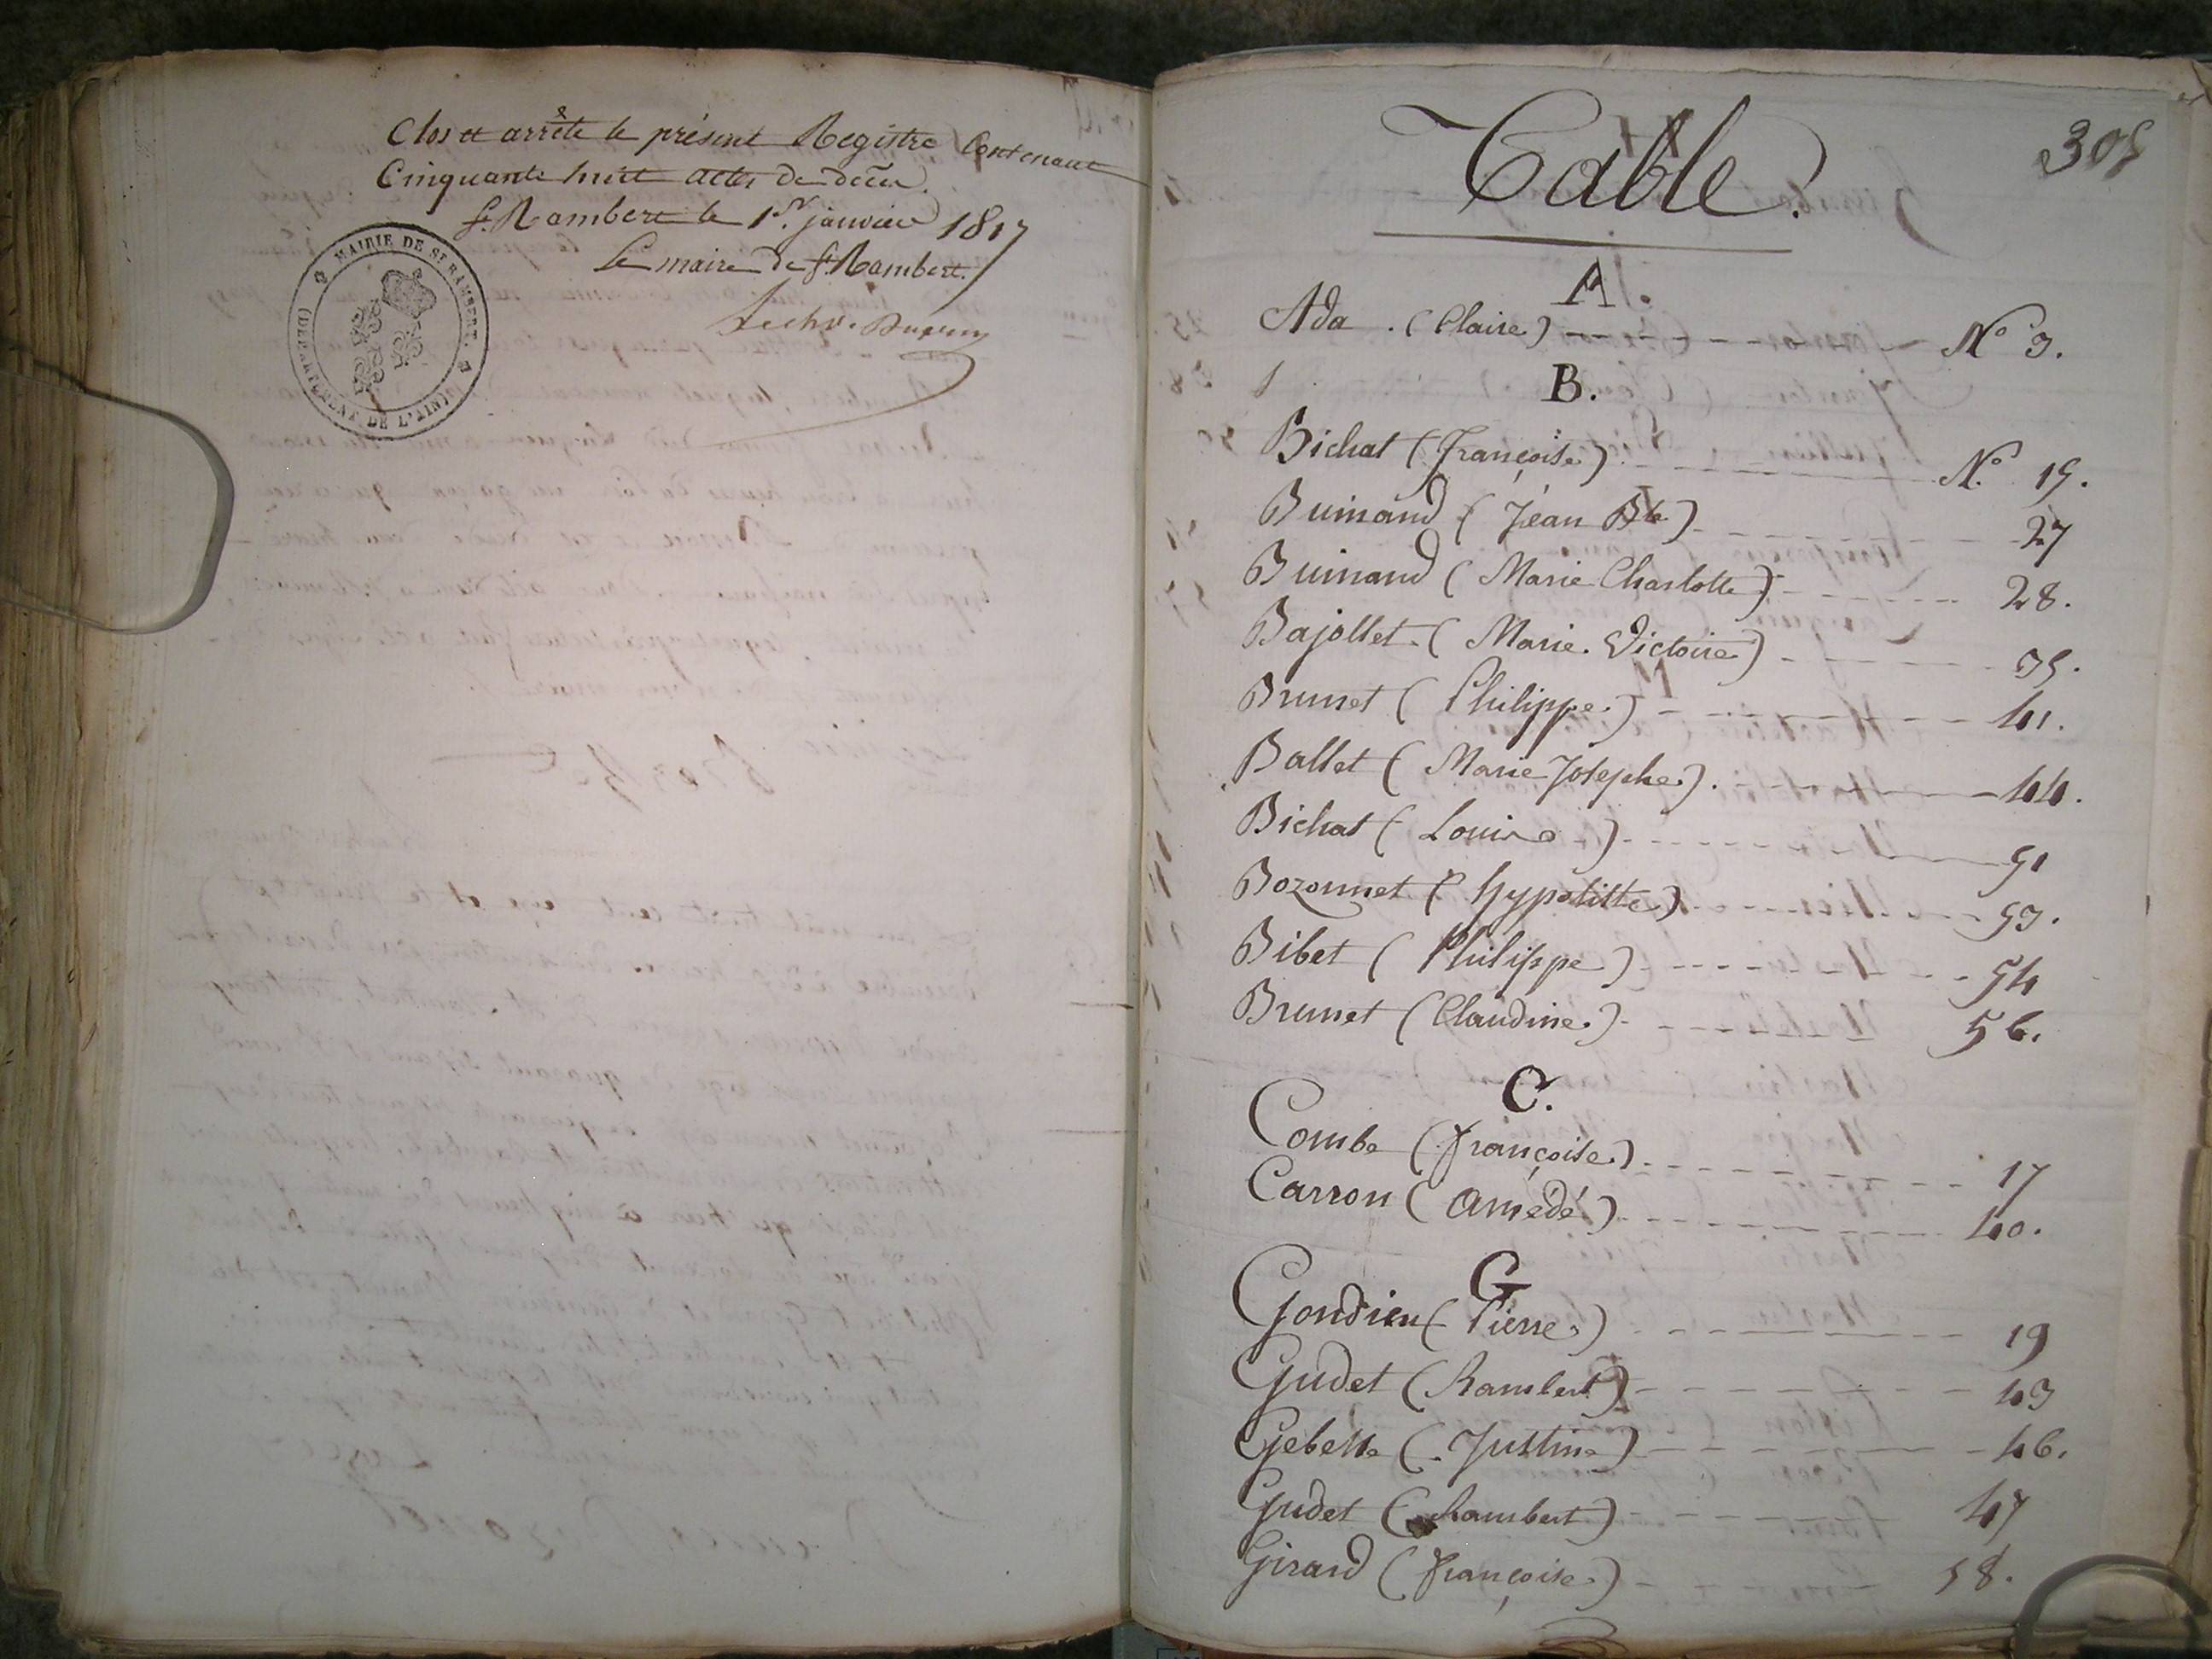 Clos et arrêté le présent Registre Contenant
Cinquante huit actes de décès.
St. Rambert le 1er. janvier 1817
Le maire de St. Rambert.
MAIRIE DE ST RAMBERT.
(DÉPARTEMENT DE L'AIN)
305
Table.
A.
Ada. (Claire) N° 3.
B.
Bichat (Françoise) N° 15.
Buinand (Jean Bte) 27
Buinand (Marie Charlotte) 28.
Bajollet. (Marie. Victoire) 35.
Brunet (Philippe.) 41.
Ballet (Marie Josephe.) 44.
Bichat (Louise) 51
Bozonnet (hypolitte) 53.
Bibet (Philippe) 54
Brunet (Claudine.) 56.
C.
Combe (françoise.) 17
Carron (Amédé) 40.
G
Gondieu (Pierre.) 19
Gudet (Rambert) 43
Gebelle (Justine) 46.
Gudet (Rambert) 47
Girard (françoise.) 58.